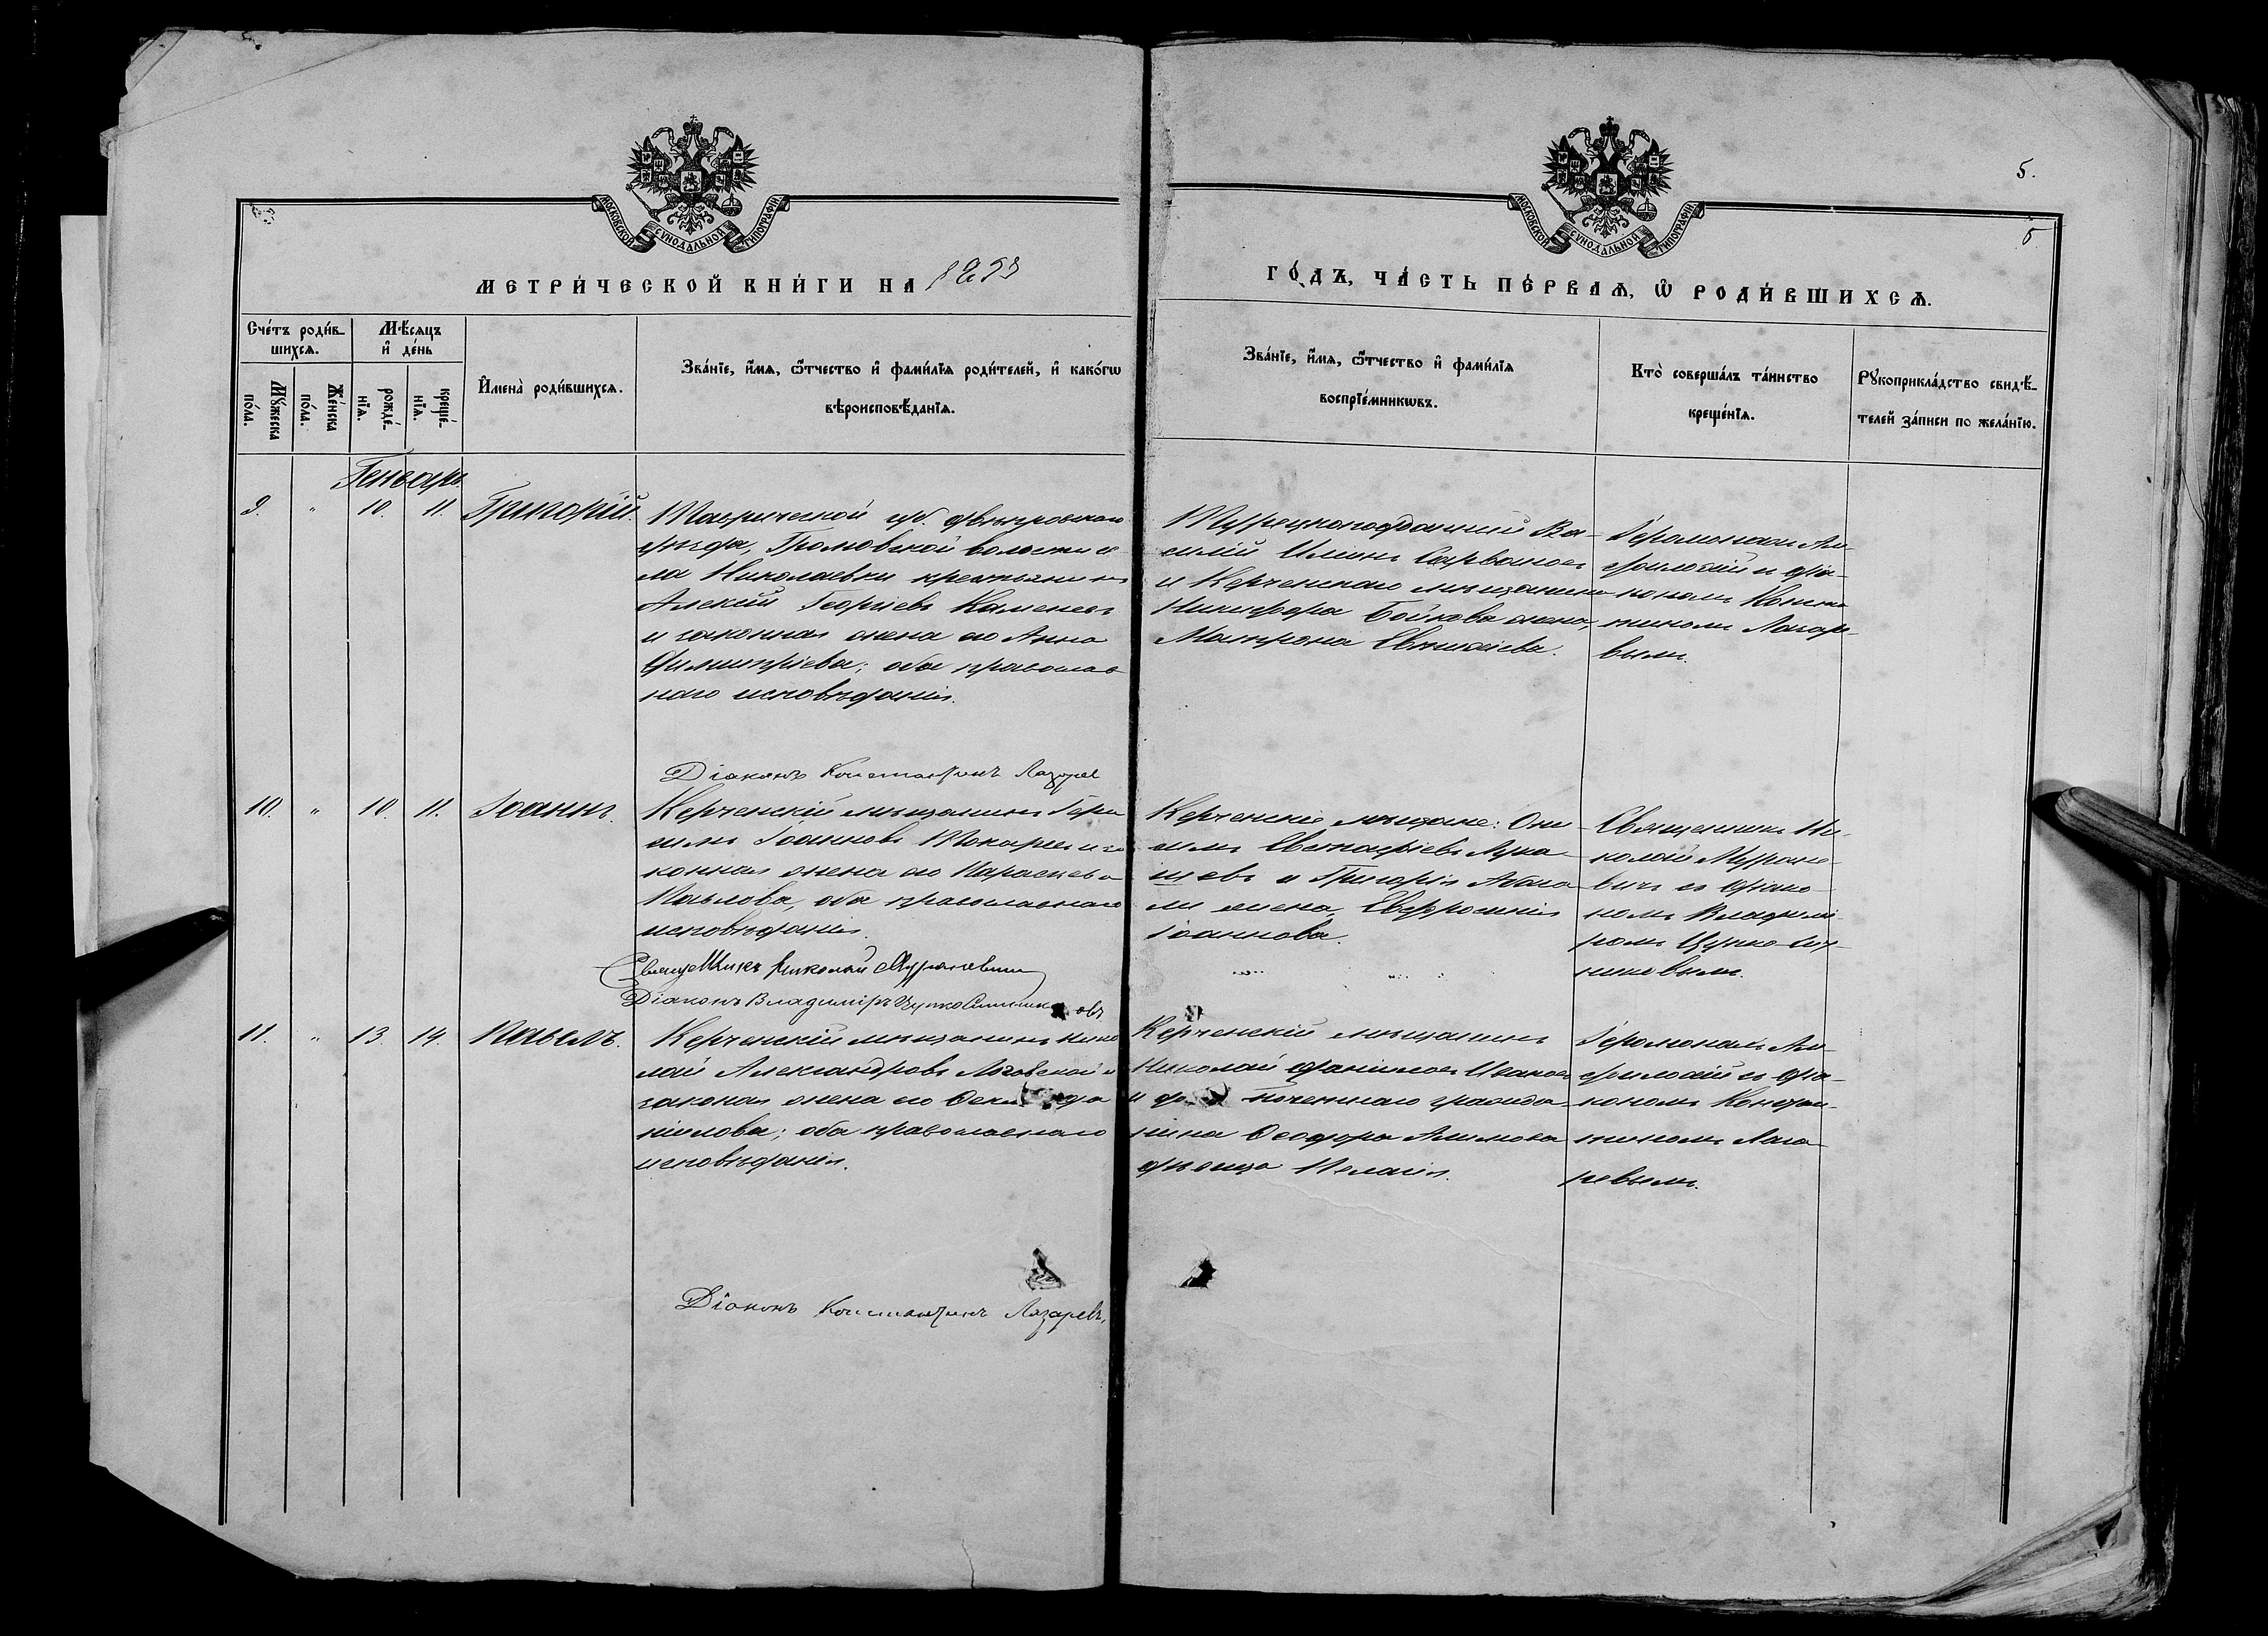 5.
5
МОСКОВСКОЙ СѴНОДАЛЬНОЙ ТИПОГРАФІИ
МОСКОВСКОЙ СѴНОДАЛЬНОЙ ТИПОГРАФІИ
МЕТРИ́ЧЕСКОЙ КНИ́ГИ НА 1893
ГО́ДЪ, ЧА́СТЬ ПЕ́РВАѦ, Ѡ҆ РОДИ́ВШИХСѦ.
Сче́тъ роди́в-
шихсѧ.
Мꙋ́жеска
по́ла.
Же́нска
по́ла.
Мѣ́сѧцъ
и҆ де́нь
рожде́-
нїѧ.
креще́-
нїѧ.
И҆мена̀ роди́вшихсѧ.
Зва́нїе, и҆́мѧ, ѻ҆́тчество и҆ фами́лїѧ роди́телей, и҆ како́гѡ
вѣроисповѣ́данїѧ.
Зва́нїе, и҆́мѧ, ѻ҆́тчество и҆ фами́лїѧ
воспрїе́мникѡвъ.
Кто̀ соверша́лъ та́инство
креще́нїѧ.
Рꙋкоприкла́дство свидѣ́-
телей за́писи по жела́нїю.
Генварь
9. " 10. 11. Григорій.
Таврической губ. Днѣпровскаго
уѣзда, Громовской волости се-
ла Николаевки крестьянинъ
Алексій Георгіевъ Каменевъ
и законная жена его Анна
Димитріева; оба православ
наго исповѣданія.
Турецкоподданный Ва-
силій Ильинъ
и Керченскаго мѣщанина
Никифора Бойкова жена,
Матрона
Іеромонахъ Ам-
филохій и діа-
кономъ Констан
тиномъ Лазаре-
вымъ.
Діаконъ Константинъ Лазарев
10. " 10. 11. Іоаннъ.
Керченскій мѣщанинъ Гера
симъ Іоанновъ Токаревъ и за
конная жена его Параскева
Павлова, оба православнаго
исповѣданія.
Керченскіе мѣщане: Они-
симъ Лука-
шевъ и Григорія
жена, Евфросинія
Іоаннова.
Священникъ Ни-
колай Мурано-
вичъ съ діако-
номъ Владимі
ромъ Цупко-Сит-
никовымъ.
Священникъ Николай Мурановичъ
Діаконъ Владиміръ Цупко Ситниковъ
11. " 13. 14. Павелъ.
Керченскій мѣщанинъ Нико
лай Александровъ и
законная жена его Да
ніилова; оба православнаго
исповѣданія.
Керченскій мѣщанинъ
Николай Даніиловъ Ивановъ
и почетнаго гражда-
нина Ѳеодора Алимова
дѣвица Пелагія.
Іеромонахъ Ам-
филохій съ діа-
кономъ Констан-
тиномъ Лаза-
ревымъ.
Діаконъ Константинъ Лазаревъ,